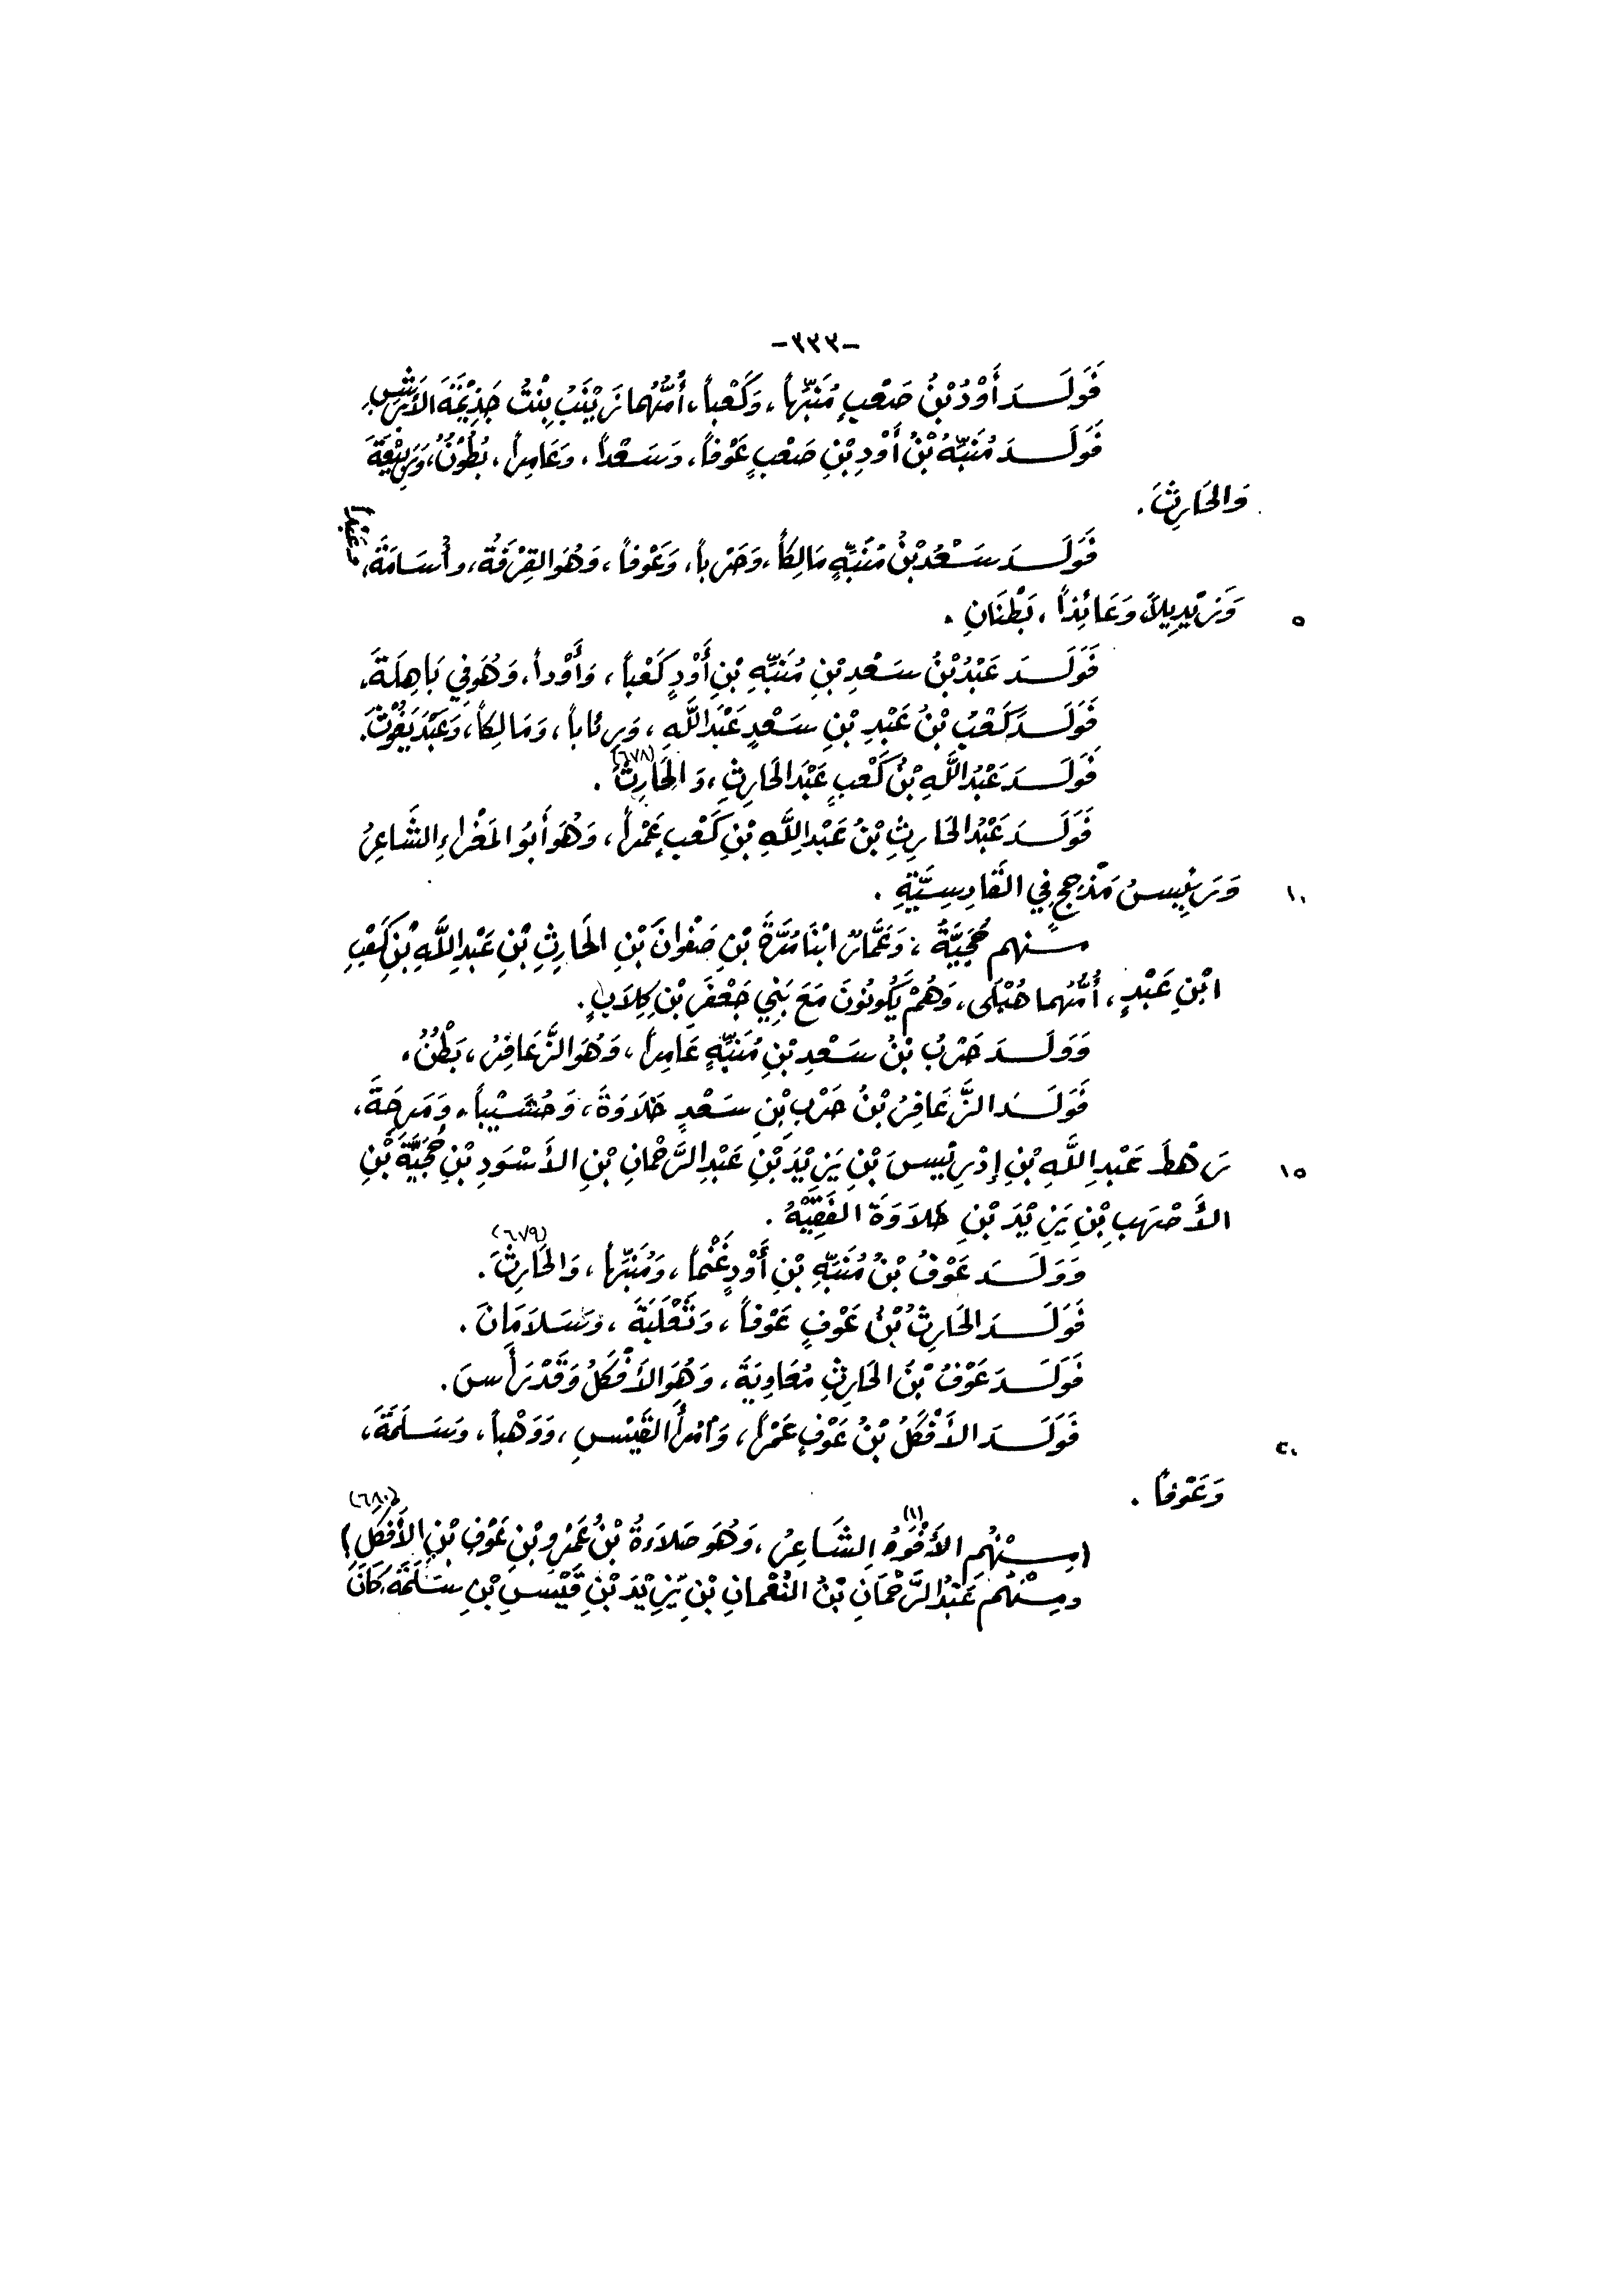 -٣٣٣-
فَوَلَـــدَ أَوْدُ بْنُ صَعْبٍ مُنَبِّهاً، وَكَعْباً، أُمُّهُما زَيْنَبُ بِنْتُ جَذِيْمَةَ الأَبْرَشِ.
فَوَلَـــدَ مُنَبِّهُ بْنُ أَوْدِ بْنِ صَعْبٍ عَوْفاً، وَسَعْداً، وَعَامِراً، بُطُوْنٌ، وَرَبِيْعَةَ
وَالحَارِثَ.
فَوَلَـــدَ سَعْدُ بْنُ مُنَبِّهٍ مَالِكاً، وَحَرْباً، وَعَوْفاً، وَهُوَ القِرْفَةُ، وأُسَامَةَ، وعَبْداً
٥ وَزَيْدِيلاً وَعَائِذاً، بَطْنَانِ.
فَوَلَـــدَ عَبْدُ بْنُ سَعْدِ بْنِ مُنَبِّهِ بْنِ أَوْدٍ كَعْباً، وَأَوْداً، وَهُوَ فِي بَاهِلَةَ.
فَوَلَـــدَ كَعْبُ بْنُ عَبْدِ بْنِ سَعْدٍ عَبْدَ اللَّهِ، وَرِئاباً، وَمَالِكاً، وَعَبْدَ يَغُوْثَ.
فَوَلَـــدَ عَبْدُ اللَّهِ بْنُ كَعْبٍ عَبْدَ الحَارِثِ، وَالحَارِثَ (٦٧٨).
فَوَلَـــدَ عَبْدُ الحَارِثِ بْنُ عَبْدِ اللَّهِ بْنِ كَعْبٍ عَمْراً، وَهُوَ أَبُو المَغْراءِ الشَّاعِرُ
١٠ وَرَئِيسُ مَذْحِجٍ فِي القَادِسِيَّةِ.
مـــنهم حُجَيَّةُ، وَعَمَّارٌ ابْنَا مُرَّةَ بْنِ صَفْوَانَ بْنِ الحَارِثِ بْنِ عَبْدِ اللَّهِ بْنِ كَعْبِ
ابْنِ عَبْدٍ، أُمُّهُما هُبْلَى، وَهُمْ يَكُونُونَ مَعَ بَنِي جَعْفَرِ بْنِ كِلَابٍ.
وَوَلَـــدَ حَرْبُ بْنُ سَعْدِ بْنِ مُنَبِّهٍ عَامِراً، وَهُوَ الزَّعَافِرُ، بَطْنٌ.
فَوَلَـــدَ الزَّعَافِرُ بْنُ حَرْبِ بْنِ سَعْدٍ حَلَاوَةَ، وَحُشَيْباً، وَمَرِحَةَ،
١٥ رَهْطَ عَبْدِ اللَّهِ بْنِ إِدْرِيْسَ بْنِ يَزِيْدَ بْنِ عَبْدِ الرَّحْمَانِ بْنِ الأَسْوَدِ بْنِ حُجَيَّةَ بْنِ
الأَصْهَبِ بْنِ يَزِيْدَ بْنِ حَلَاوَةَ الفَقِيْهُ.
وَوَلَـــدَ عَوْفُ بْنُ مُنَبِّهِ بْنِ أَوْدٍ غَنْماً، وَمُنَبِّهاً، وَالحَارِثَ (٦٧٩).
فَوَلَـــدَ الحَارِثُ بْنُ عَوْفٍ عَوْفاً، وَثَعْلَبَةَ، وَسَلَامَانَ.
فَوَلَـــدَ عَوْفُ بْنُ الحَارِثِ مُعَاوِيَةَ، وَهُوَ الأَفْكَلُ وَقَدْ رَأَسَ.
٢٠ فَوَلَـــدَ الأَفْكَلُ بْنُ عَوْفٍ عَمْراً، وَامْرأَ القَيْسِ، وَوَهْباً، وَسَلَمَةَ،
وَعَوْفاً.
(مِـــنْهُم الأَفْوَهُ (١) الشَّاعِرُ، وَهُوَ صَلَاءَةُ بْنُ عَمْرِو بْنِ عَوْفِ بْنِ الأَفْكَلِ) (٦٨٠)
ومِـــنْهُم عَبْدُ الرَّحْمَانِ بْنُ النُّعْمانِ بْنِ يَزِيْدَ بْنِ قَيْسِ بْنِ سَلَمَةَ، كَانَ